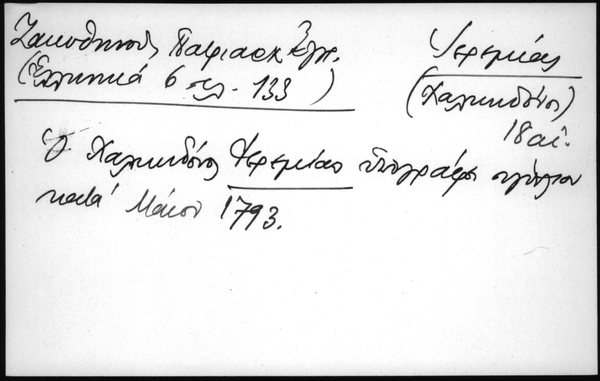 Ζακυθηνοῦ Πατριαρχ. Ἔγγρ.
(Ἑλληνικά 6 σελ. 133)
Ἱερεμίας
(Χαλκηδόνος)
18 αἰ.
Ὁ Χαλκηδόνος Ἱερεμίας ὑπογράφει
κατά Μάιον 1793.